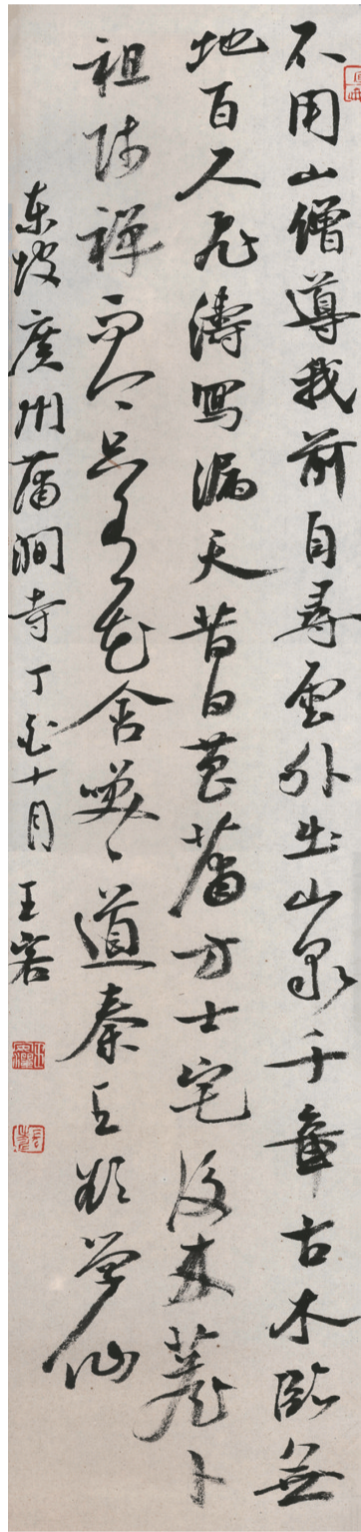 不用山僧導我前自尋雲外出山泉千章古木臨無
地百尺飛濤寫漏天昔日菖蒲方士宅後來薝卜
祖師禪而今只有花含笑々道秦王欲學仙
東坡廣州蒲澗寺丁亥十月王